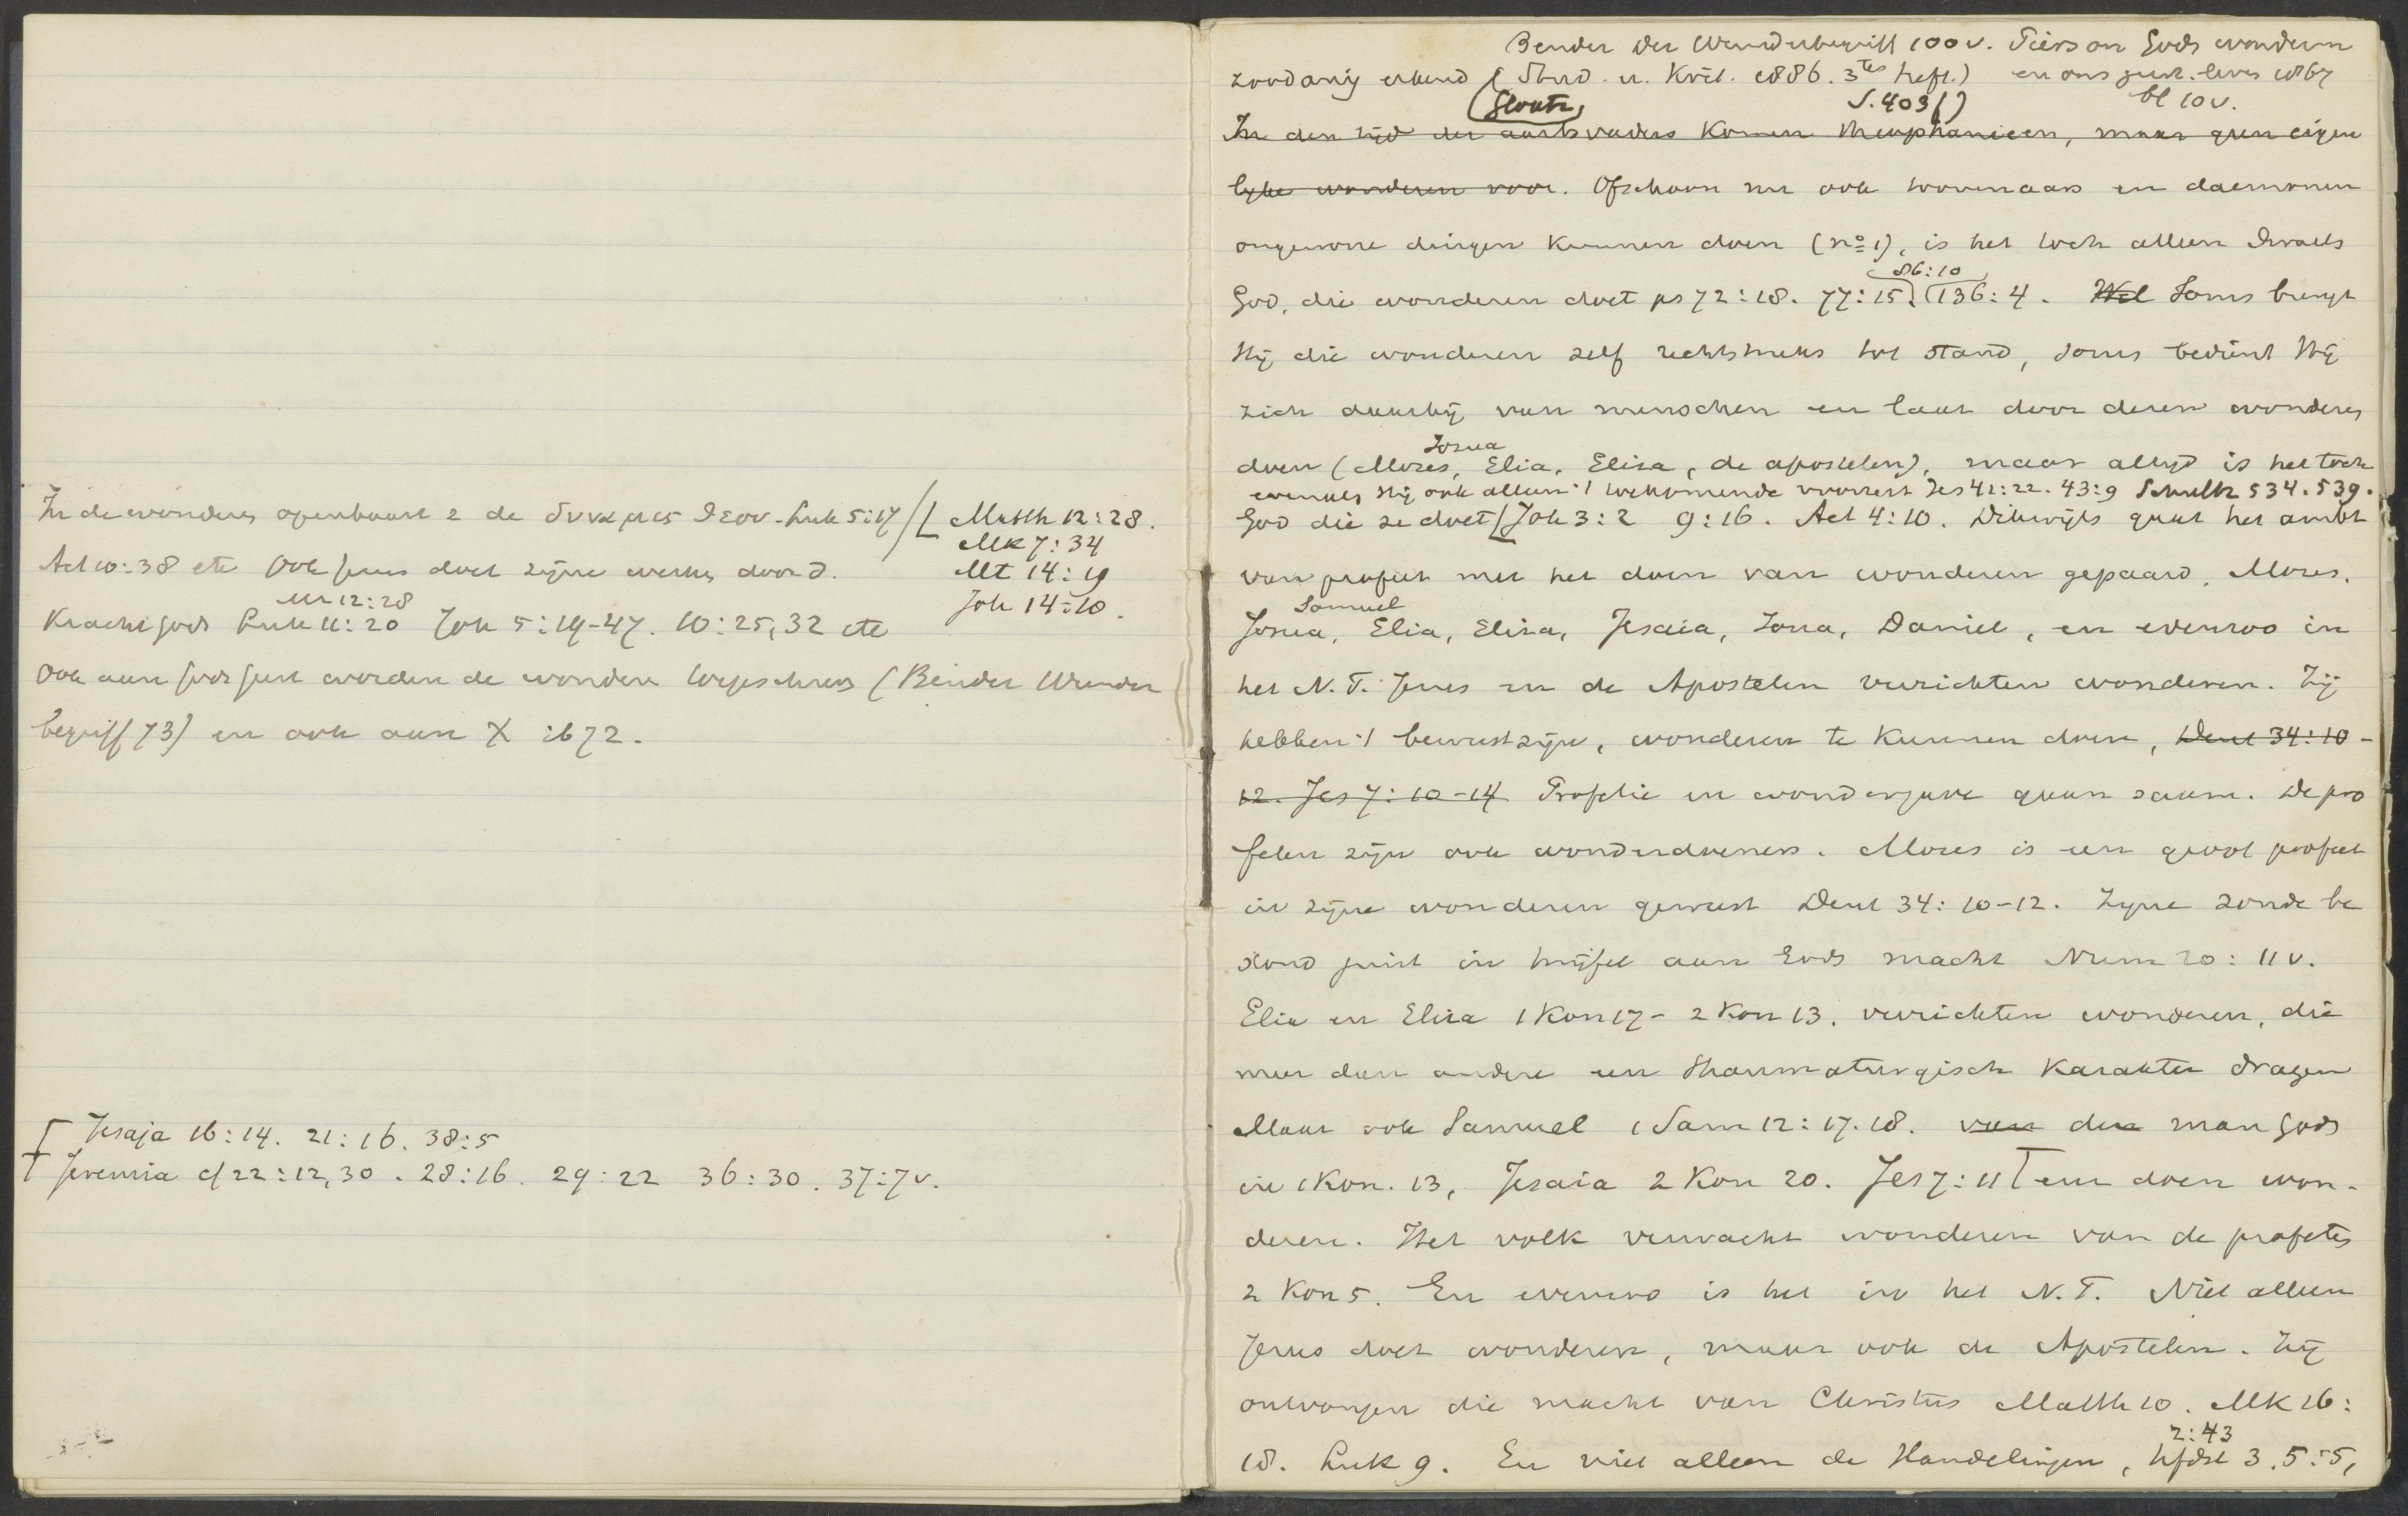 In de wonderen openbaart z de δυναμις θεου. Luk 5:17 / [ Matth 12:28.
Mk 7:34
Act 10:38 etc Ook Jezus doet zijne werken door d. Mt 14:19
Mt 12:28 Joh 14:10.
Kracht Gods Luk 11:20 Joh 5:19-47. 10:25,32 etc
Ook aan Gods Geest worden de wonderen toegeschreven (Bender Wunder
begriff 73) en ook aan X ib 72.
Jesaja 16:14. 21:16. 38:5
Jeremia cf 22:12,30. 28:16. 29:22 36:30. 37:7v.
Bender Der Wunderbegriff 100v. Pierson Gods wonderen
zoodanig erkend (Stud. u. Krit. 1886. 3tes heft.) en ons geest. leven 1867
S. 403 f) bl 10v.
In den tijd der aartsvaders komen theophanieen, maar geen eigen
lijke wonderen voor. Ofschoon nu ook toovenaars en daemonen
ongewone dingen kunnen doen (no 1), is het toch alleen Israels
86:10
God, die wonderen doet ps 72:18. 77:15. 136:4. Wel Soms brengt
Hij die wonderen zelf rechtstreeks tot stand, soms bedient Hij
zich daarbij van menschen en laat door dezen wonderen
Josua
doen (Mozes, Elia, Elisa, de apostelen), maar altijd is het toch
evenals Hij ook alleen 't toekomende voorzegt Jes 41:22. 43:9 Schultz 534. 539.
God die ze doet [Joh 3:2 9:16. Act 4:10. Dikwijls gaat het ambt
van profeet met het doen van wonderen gepaard. Mozes,
Samuel
Josua, Elia, Elisa, Jesaia, Jona, Daniel, en evenzoo in
het N.T. Jezus en de Apostelen verrichten wonderen. Zij
hebben 't bewustzijn, wonderen te kunnen doen, Deut 34:10-
12. Jes 7:10-14 Profetie en wondergave gaan saam. De pro
feten zijn ook wonderdoeners. Mozes is een groot profeet
in zijne wonderen geweest Deut 34:10-12. Zijne zonde be
stond juist in twijfel aan Gods macht Num 20:11v.
Elia en Elisa 1 Kon 17 - 2 Kon 13. verrichten wonderen, die
meer dan andere een thaumaturgisch karakter dragen
Maar ook Samuel 1 Sam 12:17.18. van den man Gods
in 1 Kon. 13, Jesaia 2 Kon 20. Jes 7:11 en doen won-
deren. Het volk verwacht wonderen van de profeten
2 Kon 5. En evenzoo is het in het N.T. Niet alleen
Jezus doet wonderen, maar ook de Apostelen. Zij
ontvangen die macht van Christus Matth 10. Mk 16:
2:43
18. Luk 9. En niet alleen de Handelingen, hfdst 3. 5:5,